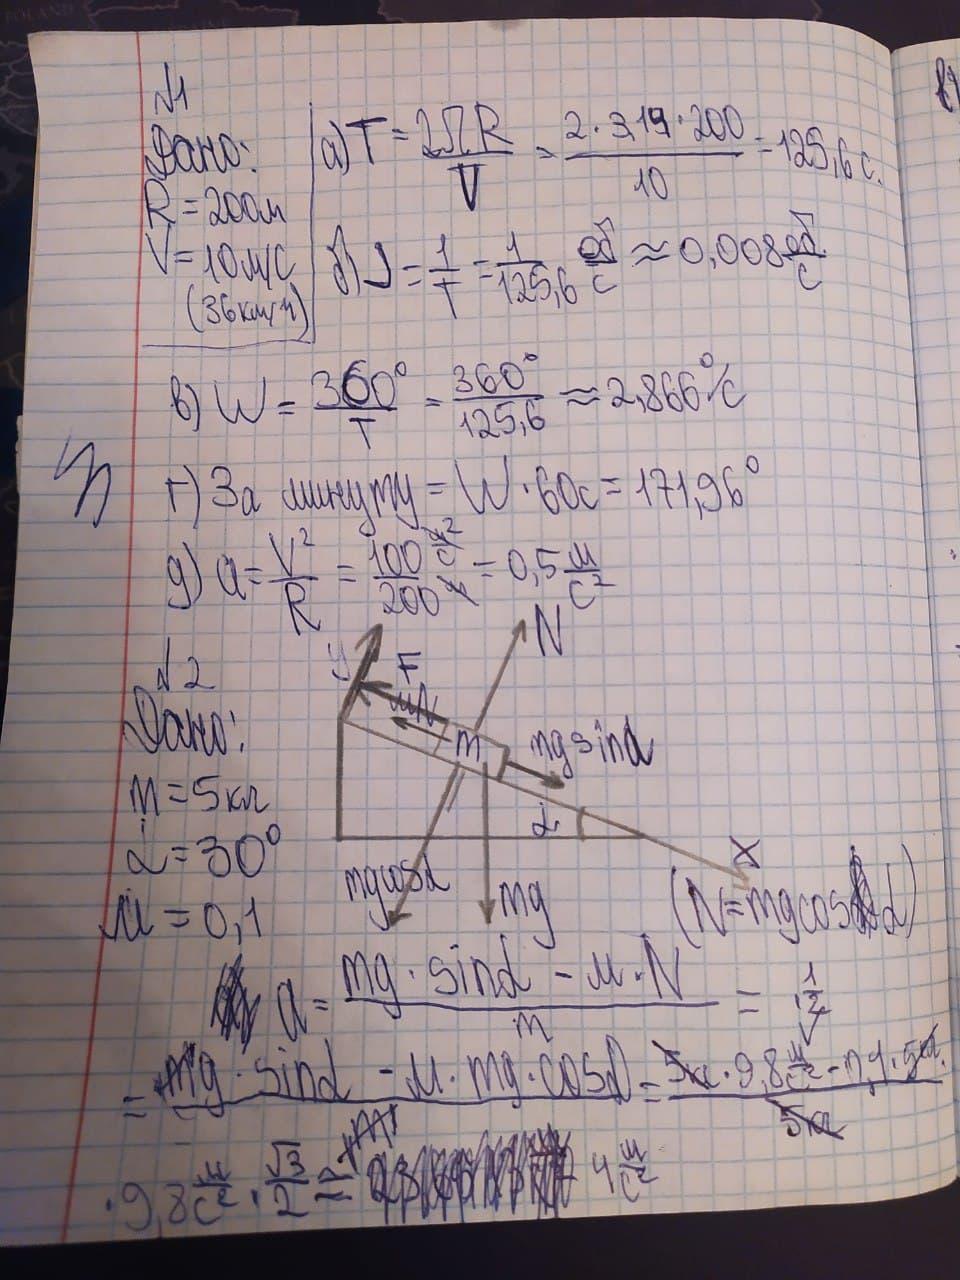 №1
Дано:
R = 200м
V = 10м/с
(36км/ч)
а) T = 2πR/V = 2·3,14·200/10 = 125,6 с.
б) ν = 1/T = 1/125,6 об/с ≈ 0,008 об/с
в) W = 360°/T = 360°/125,6 ≈ 2,866°/с
г) За минуту = W·60с = 171,96°
д) a = V²/R = 100 м²/с² / 200 м = 0,5 м/с²
№2
Дано:
m = 5кг
α = 30°
μ = 0,1
y
F
μN
N
m
mg sinα
α
x
mg cosα
mg
(N = mg cos α)
a = mg·sinα - μ·N / m =
= mg·sinα - μ·mg·cosα / m = 5кг·9,8 м/с²·1/2 - 0,1·5кг· / 5кг
·9,8 м/с²·√3/2 ≈ 4 м/с²